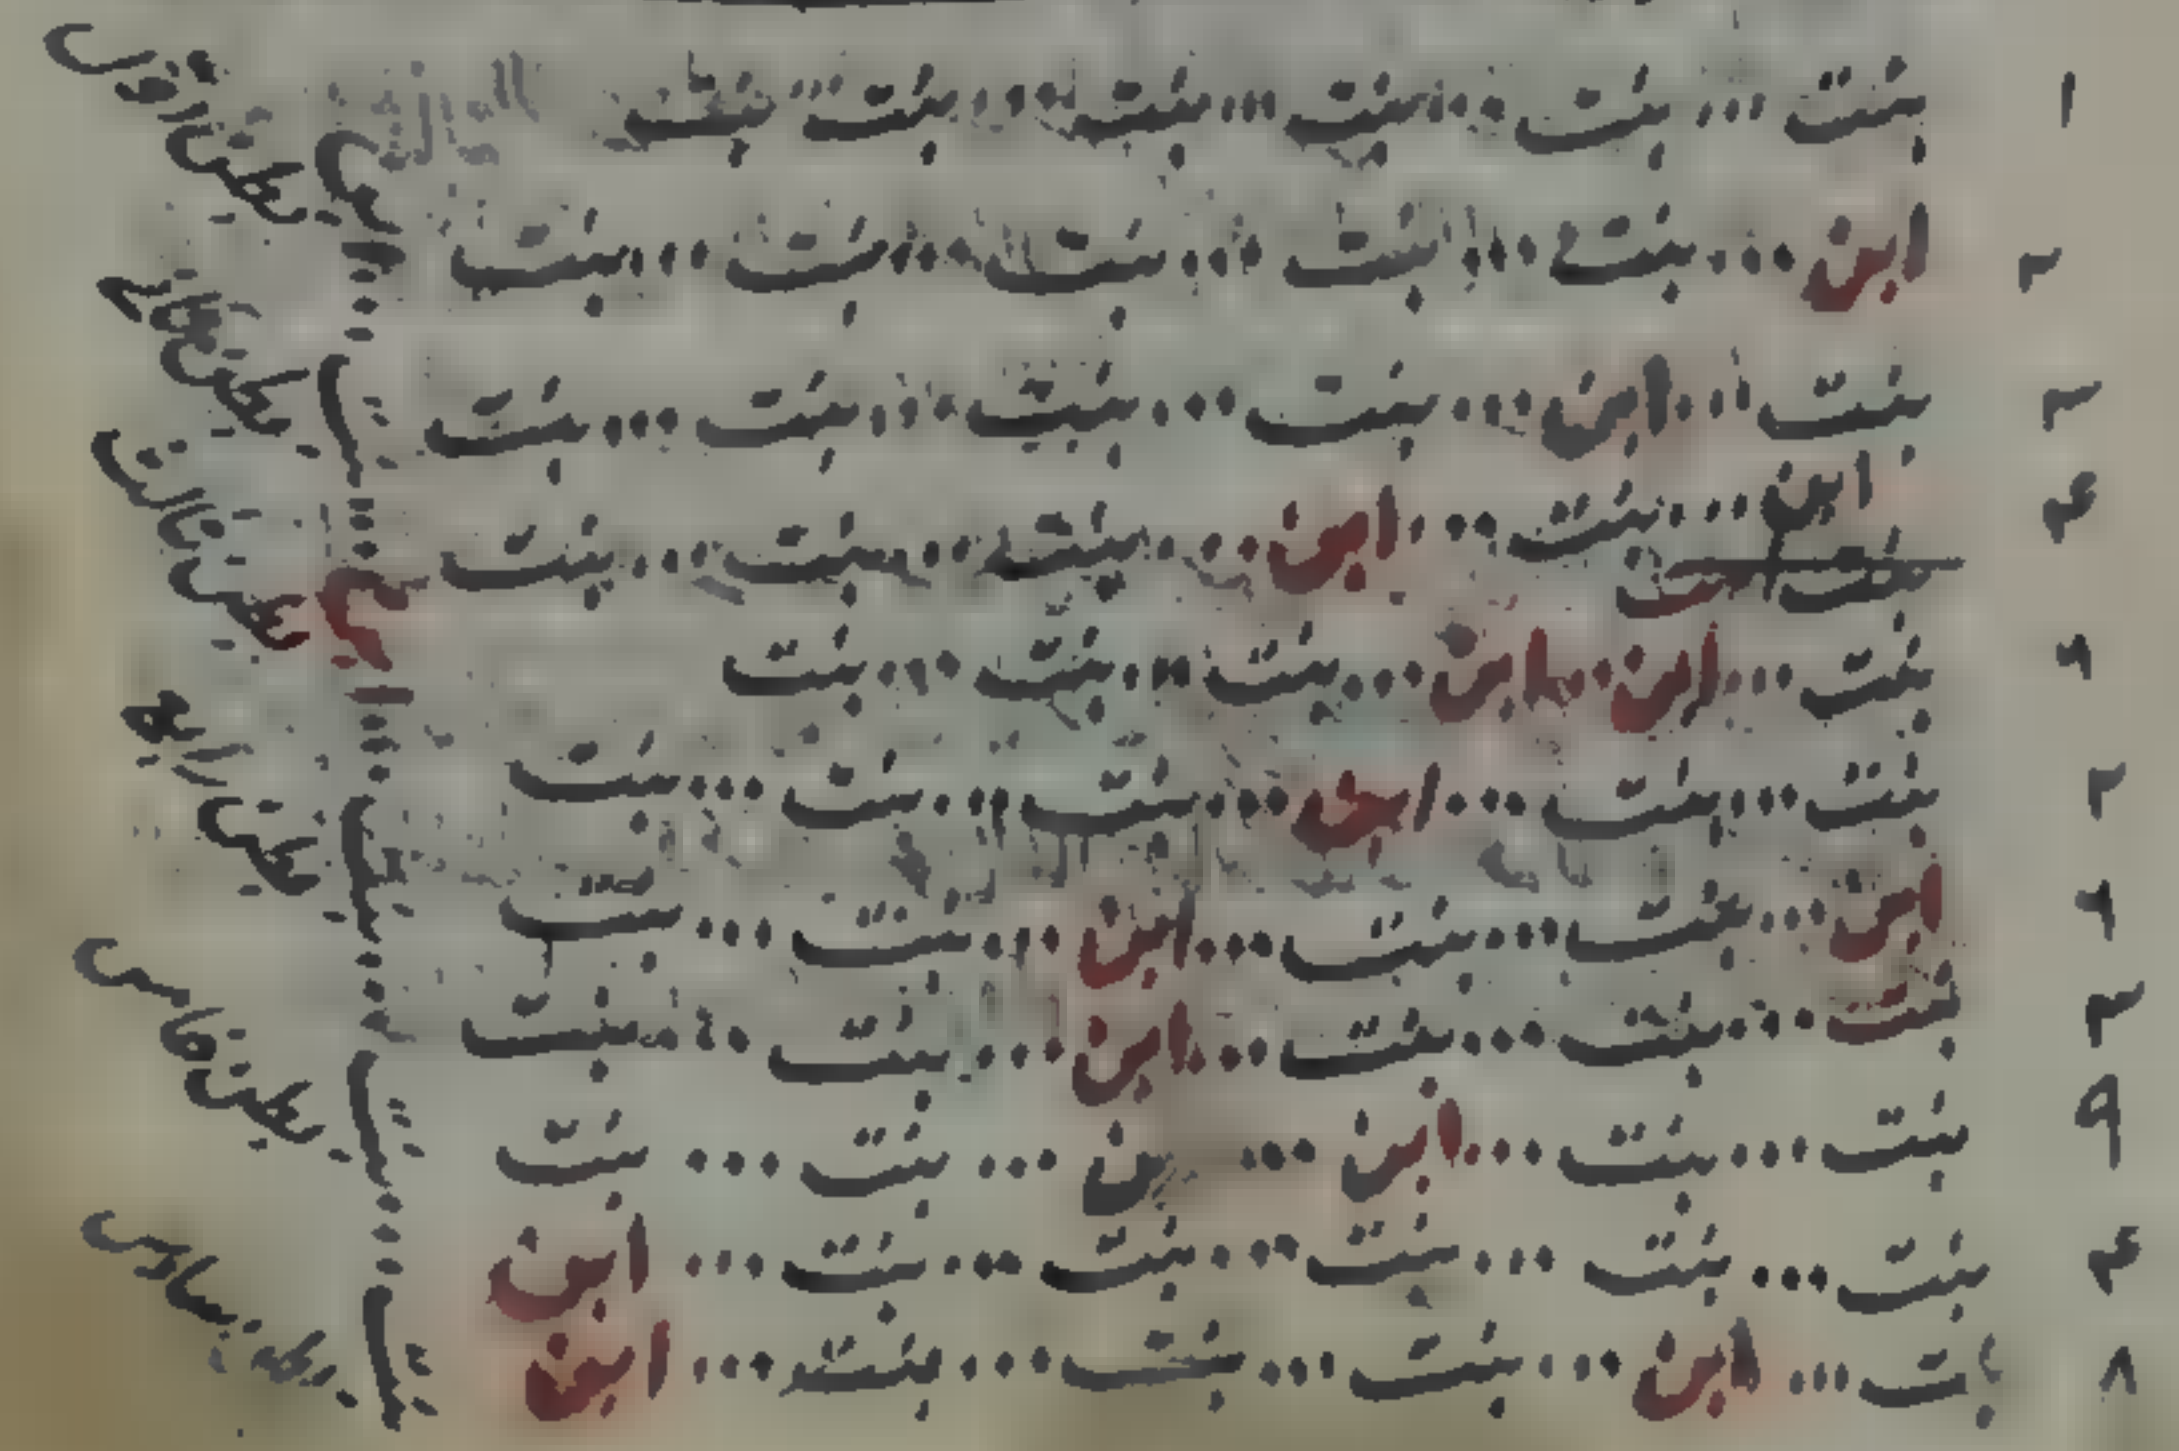 ١ بنت ... بنت ... بنت ... بنت ... بنت ... بنت
٢ ابن ... بنت ... بنت ... بنت ... بنت ... بنت
٣ بنت ... ابن ... بنت ... بنت ... بنت ... بنت
۴ ابن ... بنت ... ابن ... بنت ... بنت ... بنت
بنت
٩ بنت ... ابن ... ابن ... بنت ... بنت ... بنت
٢ بنت ... بنت ... ابن ... بنت ... بنت ... بنت
٩ ابن ... بنت ... بنت ... ابن ... بنت ... بنت
٣ بنت ... بنت ... بنت ... ابن ... بنت ... بنت
٩ بنت ... بنت ... ابن ... بن ... بنت ... بنت
۴ بنت ... بنت ... بنت ... بنت ... بنت ... ابن
٨ بنت ... ابن ... بنت ... بنت ... بنت ... ابن
بطن اول
بطن ثانے
بطن ثالث
بطن رابع
بطن خامس
بطن سادس
بنت ... بنت ... ابن ... بنت ... بنت ... بنت